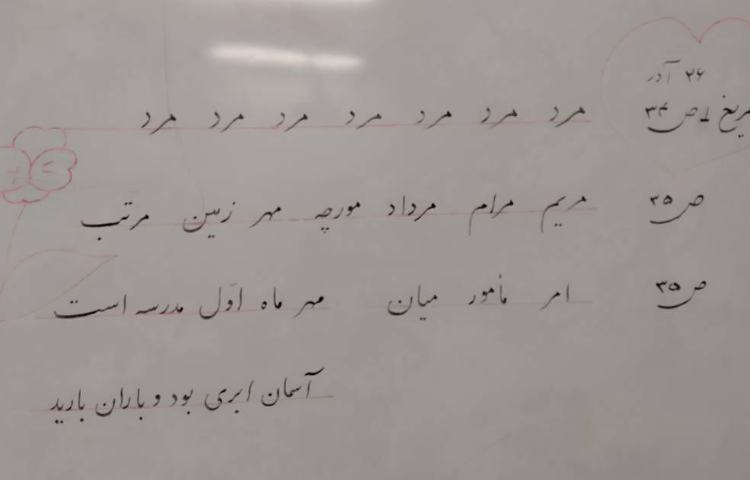 ۲۶ آذر
ص ۳۴ مرد مرد مرد مرد مرد مرد مرد
ص ۳۵ مریم مرام مرداد مورچه مهر زمین مرتب
ص ۳۵ امر مأمور میان مهر ماه اوّل مدرسه است
آسمان ابری بود و باران بارید